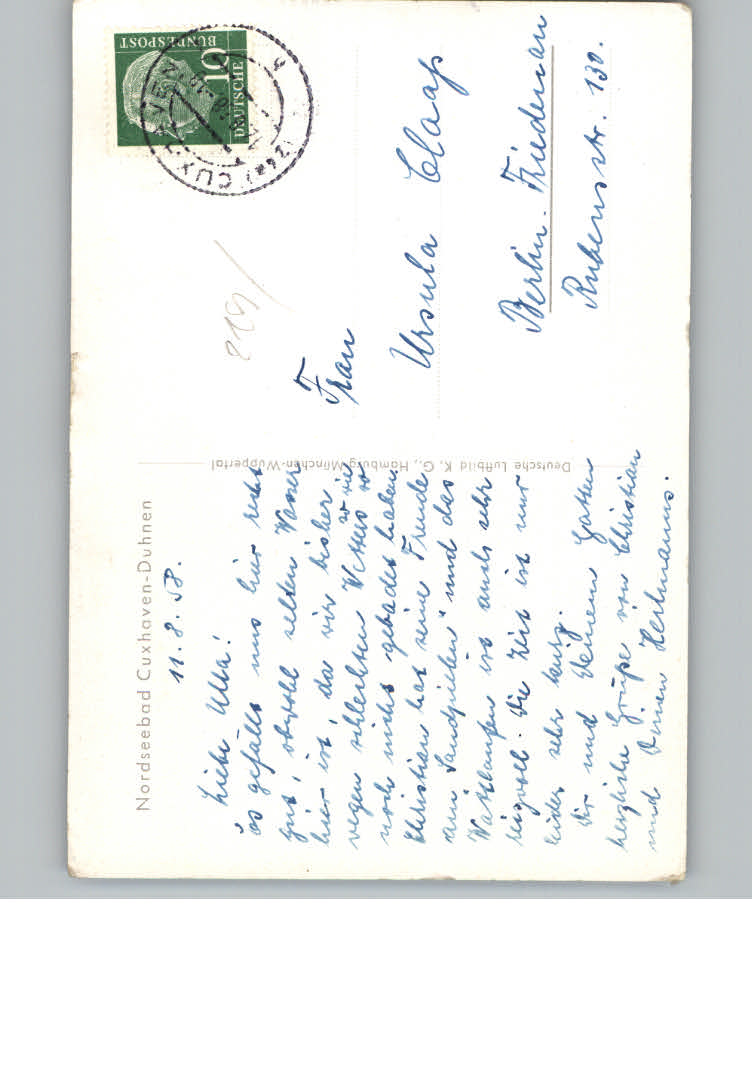 Nordseebad Cuxhaven-Duhnen
11. 8. 58.
Liebe Ulla!
es gefällt uns hier recht
gut, obwohl selten Wasser
hier ist, da wir bisher
wegen schlechten Wetters so wie
noch nicht gebadet haben.
Christian hat seine Freude
am "Sandspielen" und das
Wattlaufen ist auch sehr
reizvoll. Die Zeit ist nur
leider sehr kurz.
Dir und Deinem Gatten
herzliche Grüße von Christian
und Deinen Heitmanns.
Deutsche Luftbild K. G., Hamburg-München-Wuppertal
DEUTSCHE
BUNDESPOST
10
(24a) CUXHAVEN
Frau
Ursula
Berlin-Friedenau
Rubensstr. 130.